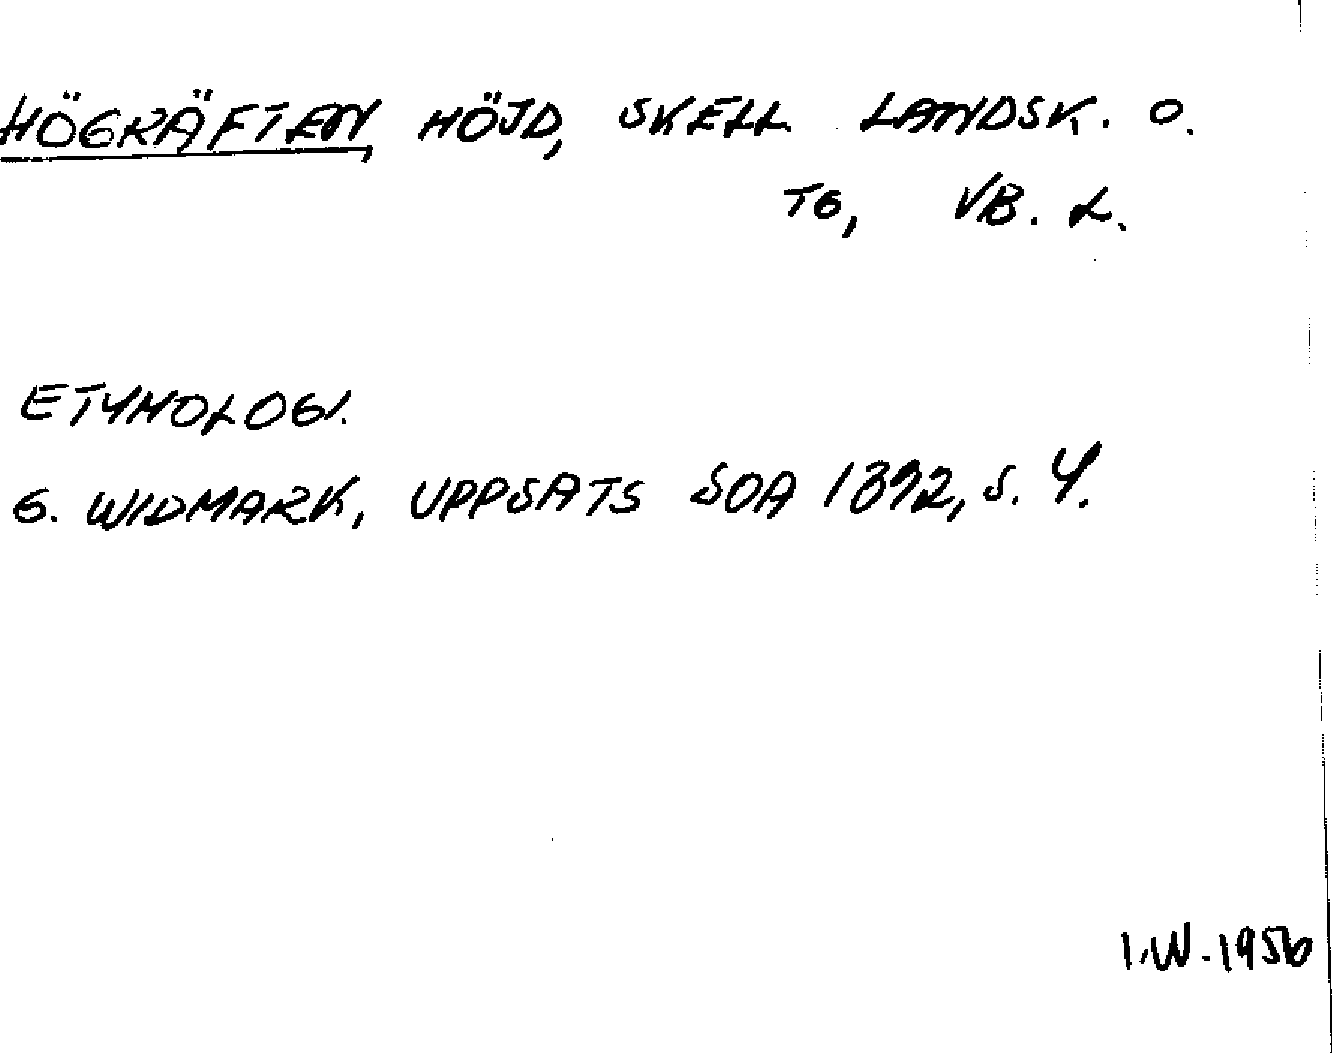 HÖGRÄFTEN, HÖJD, SKELL LANDSK. O.
TG, VB. L.
ETYMOLOGI.
G. WIDMARK, UPPSATS SOA 1392, S. 4.
I.W. 1956